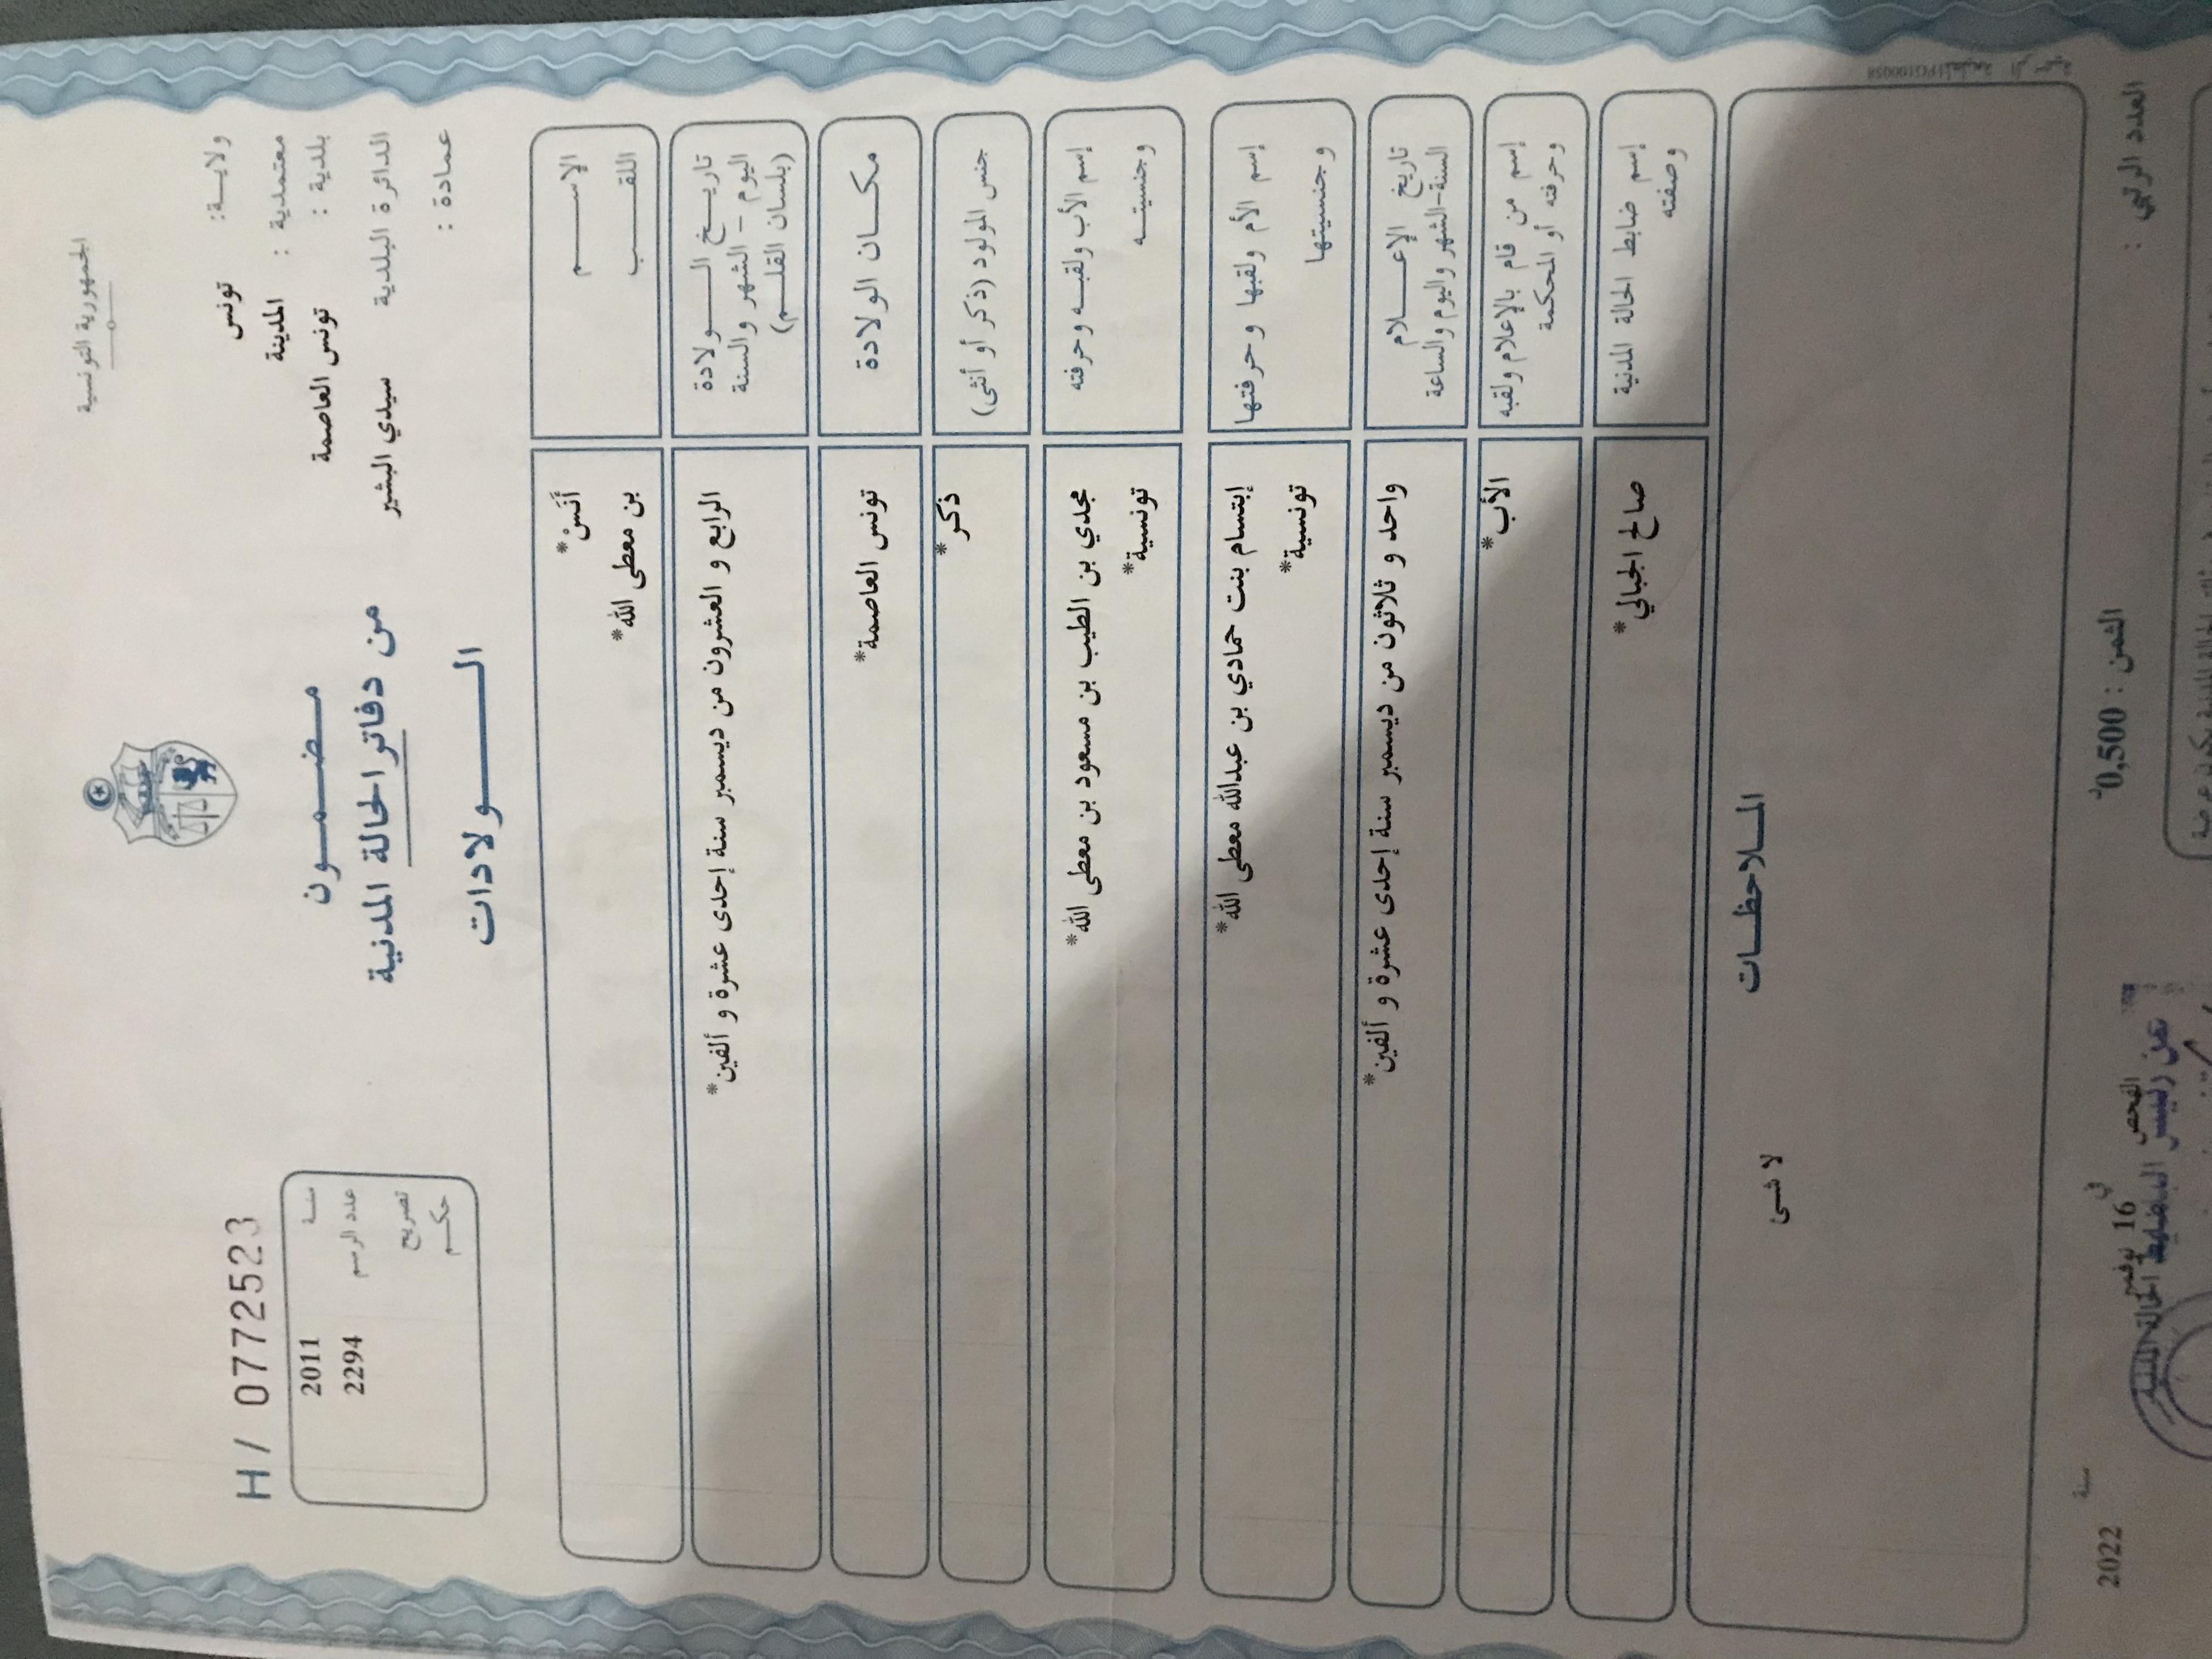 الجمهورية التونسية
ولاية: تونس
معتمدية : المدينة
بلدية : تونس العاصمة
الدائرة البلدية سيدي البشير
عمادة :
مضمون
من دفاتر الحالة المدنية
الولادات
H/ 0772523
سنة 2011
عدد الرسم 2294
تصريح
حكم
الإسم أَنَسْ*
اللقب بن معطى الله*
تاريخ الولادة
اليوم - الشهر والسنة
(بلسان القلم)
الرابع و العشرون من ديسمبر سنة إحدى عشرة و ألفين*
مكان الولادة تونس العاصمة*
جنس المولود (ذكر أو أنثى) ذكر*
إسم الأب ولقبه وحرفته مجدي بن الطيب بن مسعود بن معطى الله*
وجنسيته تونسية*
إسم الأم ولقبها وحرفتها إبتسام بنت حمادي بن عبدالله معطى الله*
وجنسيتها تونسية*
تاريخ الإعلام
السنة-الشهر واليوم والساعة
واحد و ثلاثون من ديسمبر سنة إحدى عشرة و ألفين*
إسم من قام بالإعلام ولقبه
وحرفته أو المحكمة
الأب*
إسم ضابط الحالة المدنية
وصفته
صالح الجبالي*
الملاحظات
لا شئ
العدد الرتبي :
الثمن : 0,500د
في 16 نوفمبر سنة 2022
الفحص
عن رئيس البلدية
ضابط الحالة المدنية